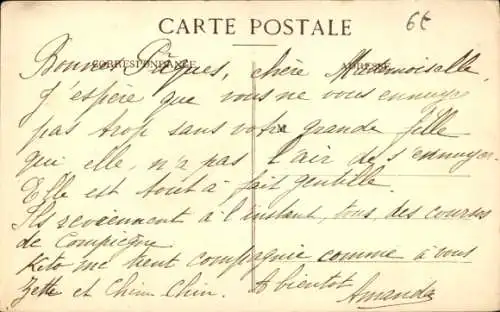 CARTE POSTALE
6€
CORRESPONDANCE
ADRESSE
Bonnes Pâques, chère Mademoiselle,
J'espère que vous ne vous ennuyez
pas trop sans votre grande fille
qui elle, n'a pas l'air de s'ennuyer.
Elle est tout à fait gentille.
Ils reviennent à l'instant, tous, des courses
de Compiègne
Keto me tient compagnie comme à vous
Zette et Chim Chim. A bientôt
Amanda